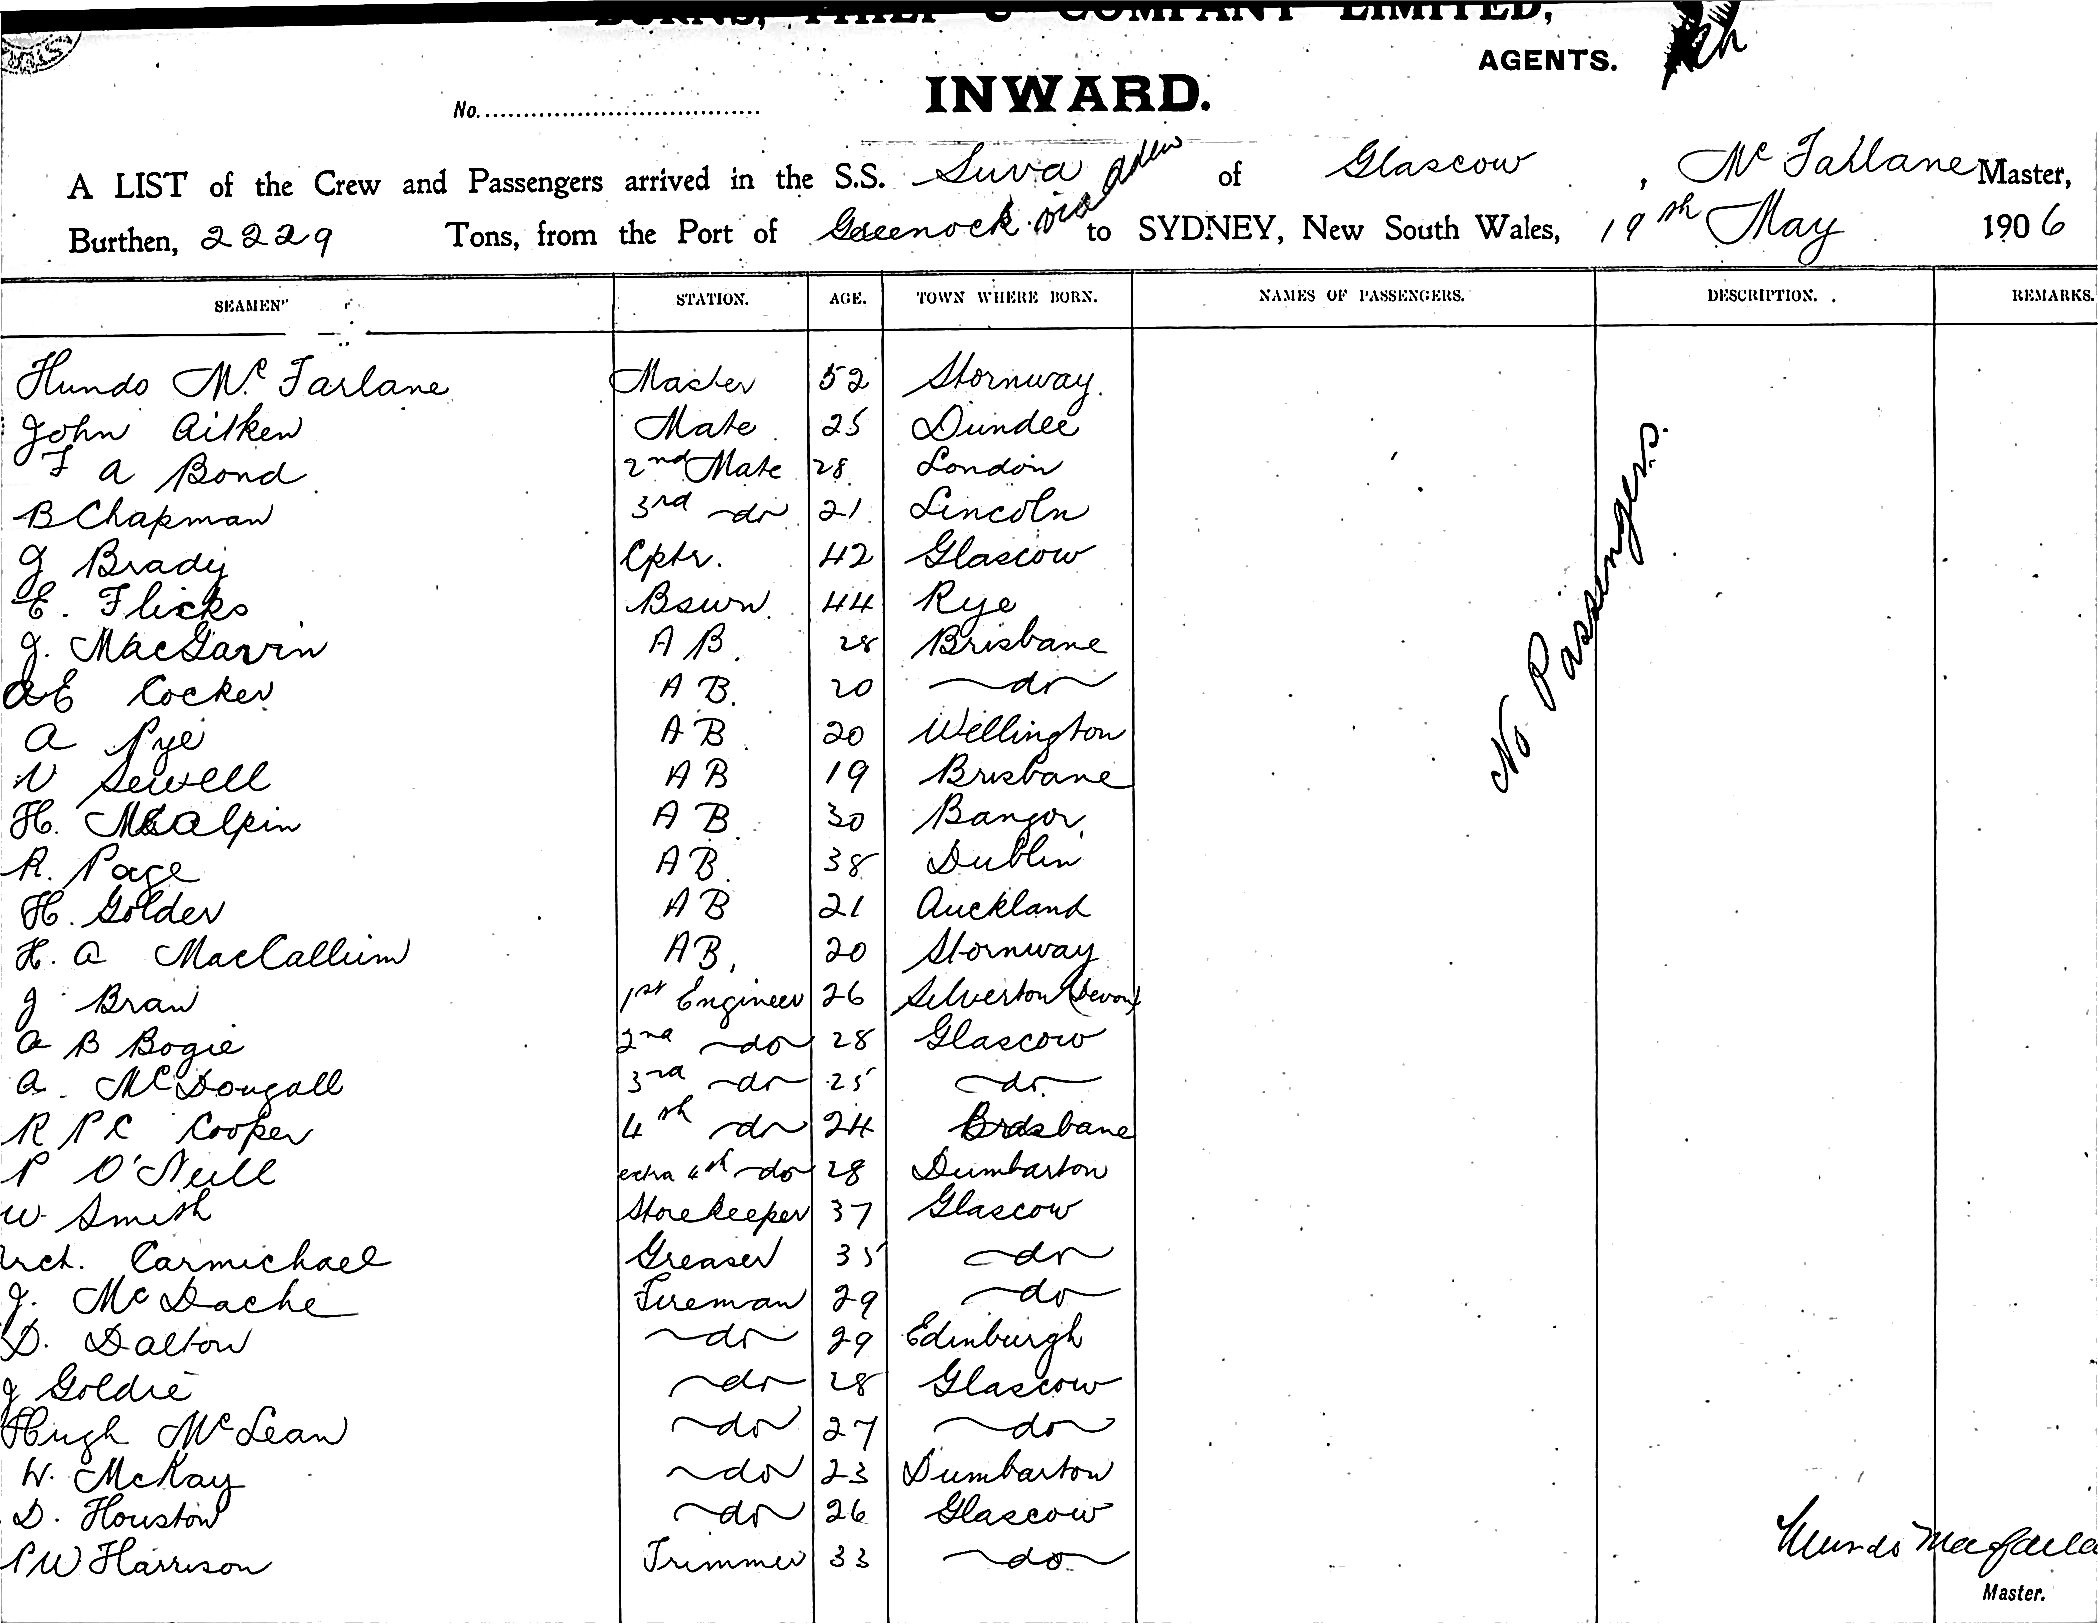 BURNS, PHILP & COMPANY LIMITED,
AGENTS.
INWARD.
No.
A LIST of the Crew and Passengers arrived in the S.S. Suva of Glascow, Mc Farlane Master,
Burthen, 2229 Tons, from the Port of Greenock via Aden to SYDNEY, New South Wales, 19th May 1906
SEAMEN STATION. AGE. TOWN WHERE BORN. NAMES OF PASSENGERS. DESCRIPTION. REMARKS.
Hundo Mc Farlane Master 52 Stornway.
John Aitken Mate 25 Dundee
F A Bond 2nd Mate 28 London
B Chapman 3rd do 21 Lincoln
J Brady Cptr. 42 Glascow
E. Flicks Bswn. 44 Rye
J. MacGavin A B. 28 Brisbane
A E Cocker A B. 20 do
A Pye A B. 20 Wellington
N Sewell A B 19 Brisbane
H. McAlpin A B 30 Bangor
R. Page A B. 38 Dublin
H. Golder A B 21 Auckland
H. A MacCallum A B. 20 Stornway
J Bran 1st Engineer 26 Silverton (Devon)
A B Bogie 2nd do 28 Glascow
A. McDougall 3rd do 25 do
R P C Cooper 4th do 24 Brisbane
P O'Neill extra 4th do 28 Dumbarton
W Smith Storekeeper 37 Glascow
Arch. Carmichael Greaser 35 do
J. McDache Fireman 29 do
D. Dalton do 29 Edinburgh
J Goldie do 28 Glascow
Hugh McLean do 27 do
W. McKay do 23 Dumbarton
D. Houston do 26 Glascow
P W Harrison Trimmer 33 do
No Passengers.
Master.